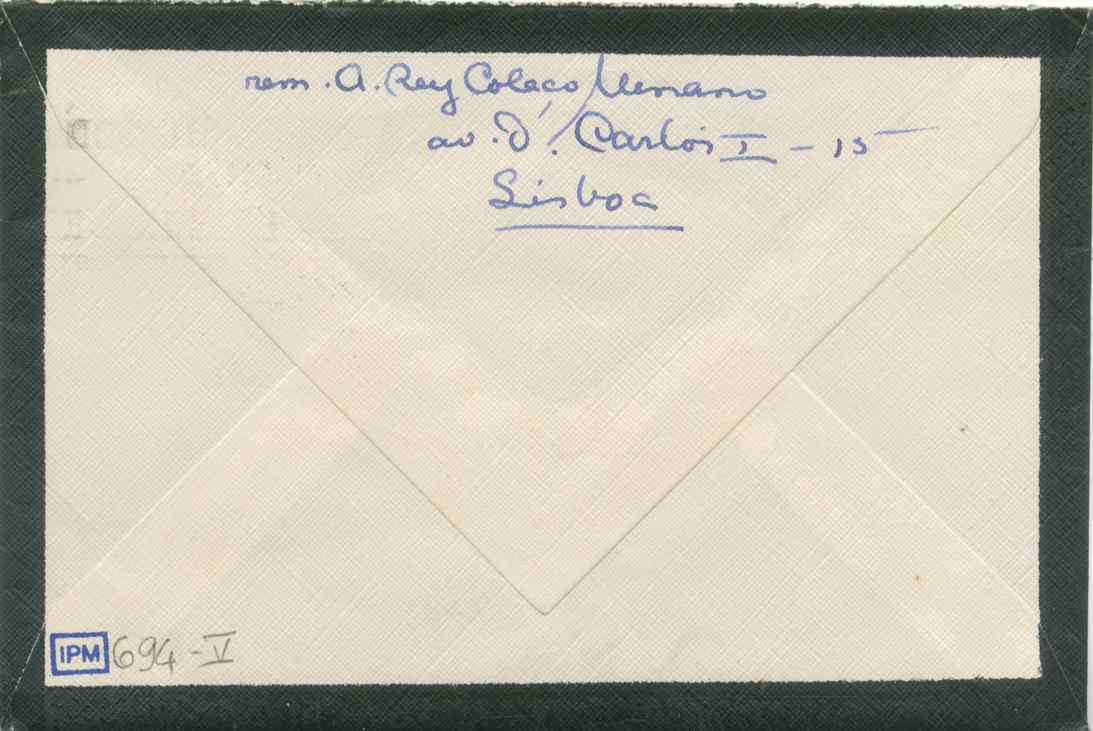 rem. A. Rey Colaço Menano
av. D. Carlos I - 15
Lisboa
IPM 694-V